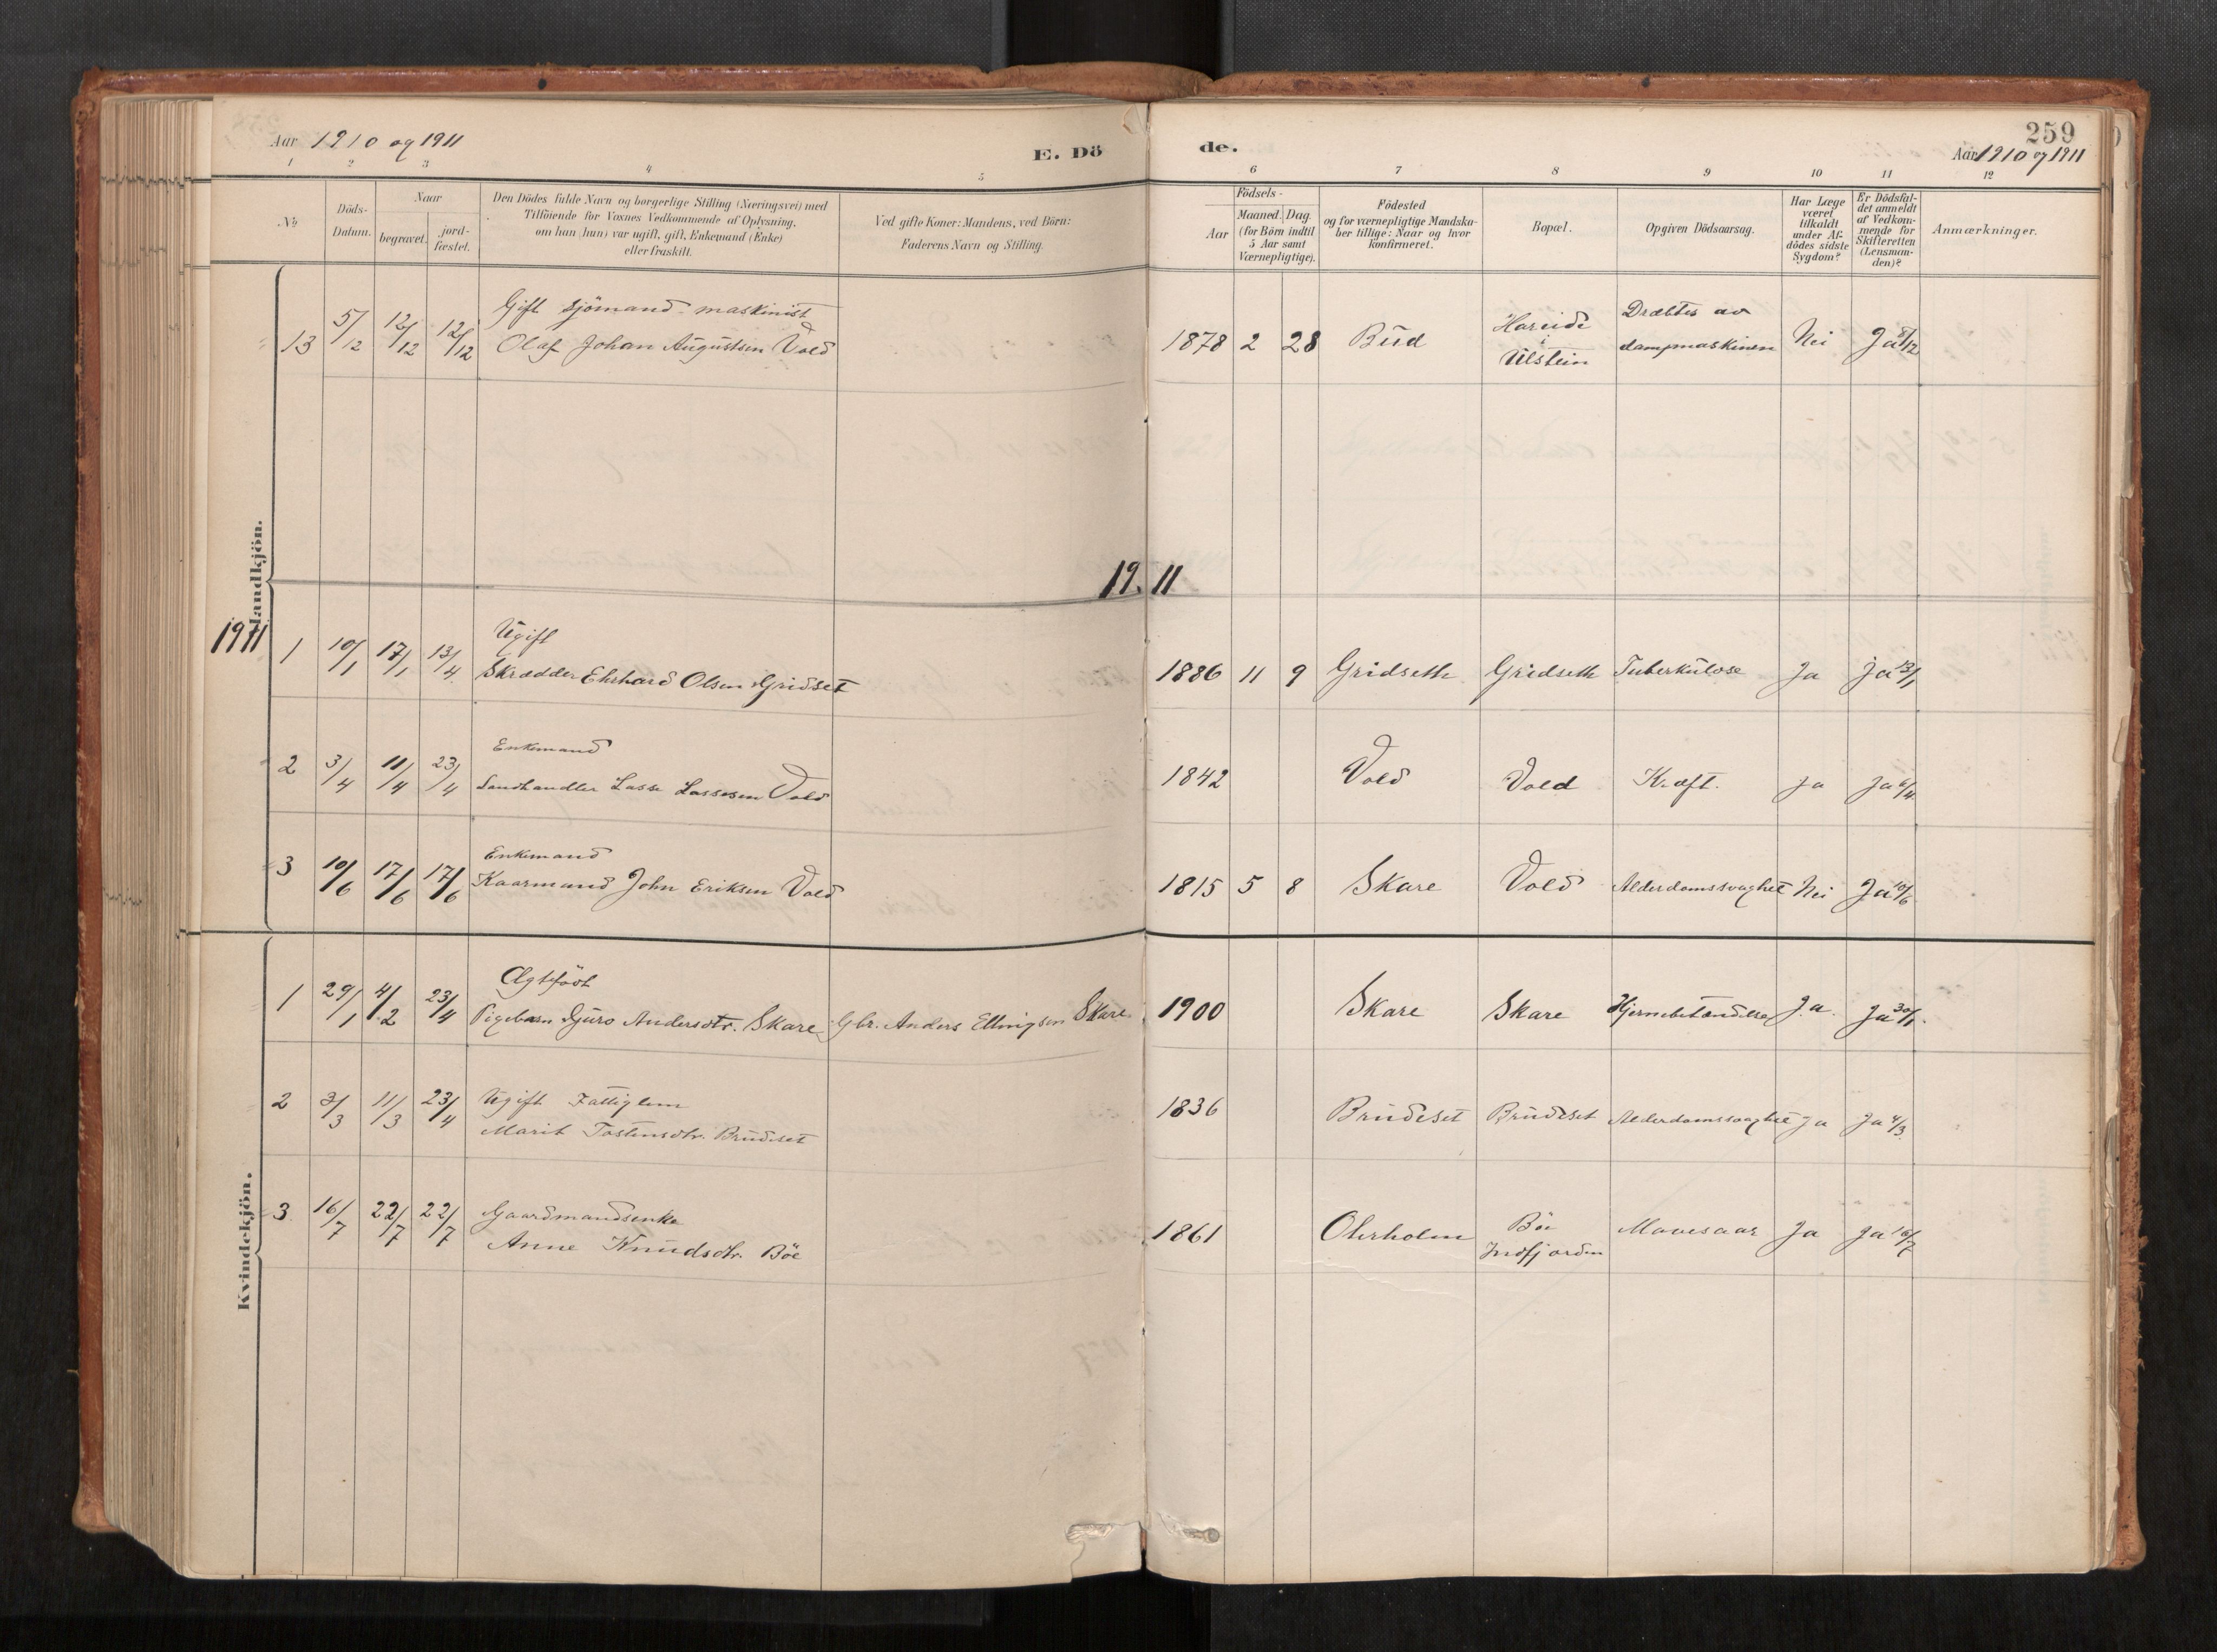 259
Aar 1910 og 1911
E. Dö
de.
Aar 1910 og 1911
1 2 3 4 5 6 7 8 9 10 11 12
No
Döds-
Datum.
Naar
begravet.
jord-
fæstet.
Den Dödes fulde Navn og borgerlige Stilling (Næringsvei) med
Tilföiende for Voxnes Vedkommende af Oplysning,
om han (hun) var ugift, gift, Enkemand (Enke)
eller fraskilt.
Ved gifte Koner: Mandens, ved Börn:
Faderens Navn og Stilling.
Födsels-
Aar
Maaned. Dag.
(for Börn indtil
5 Aar samt
Værnepligtige).
Födested
og for værnepligtige Mandska-
ber tillige: Naar og hvor
konfirmeret.
Bopæl.
Opgiven Dödsaarsag.
Har Læge
været
tilkaldt
under Af-
dödes sidste
Sygdom?
Er Dödsfal-
det anmeldt
af Vedkom-
mende for
Skifteretten
(Lensman-
den)?
Anmærkninger.
Mandkjön.
13 5/12 12/12 12/12
Gift sjömand-maskinist
Olaf Johan Augustsen Vold
1878 2 28 Bud
Hareide
i
Ulstein
Dræbtes av
dampmaskinen
Nei
Ja 8/12
19 11
1911
1 10/1 17/1 13/4
Ugift
Skrædder Ehrhard Olsen Gridset
1886 11 9 Gridseth Gridseth Tuberkulose Ja Ja 13/1
2 3/4 11/4 23/4
Enkemand
Landhandler Lasse Lassesen Vold
1842 Vold Vold Kræft. Ja Ja 6/4
3 10/6 17/6 17/6
Enkemand
Kaarmand John Eriksen Vold
1815 5 8 Skare Vold Alderdomssvaghet Nei Ja 10/6
Kvindekjön.
1 29/1 4/2 23/4
Ægtefödt
Pigebarn Guro Andersdtr. Skare Gbr. Anders Ellingsen Skare
1900 Skare Skare Hjernebetændelse Ja. Ja 30/1.
2 3/3 11/3 23/4
Ugift Fattiglem
Marit Tostensdtr. Brudeset
1836 Brudeset Brudeset Alderdomssvaghet Ja Ja 4/3
3 16/7 22/7 22/7
Gaardmandsenke
Anne Knudsdtr. Böe
1861
Böe
Indfjorden
Mavesaar Ja Ja